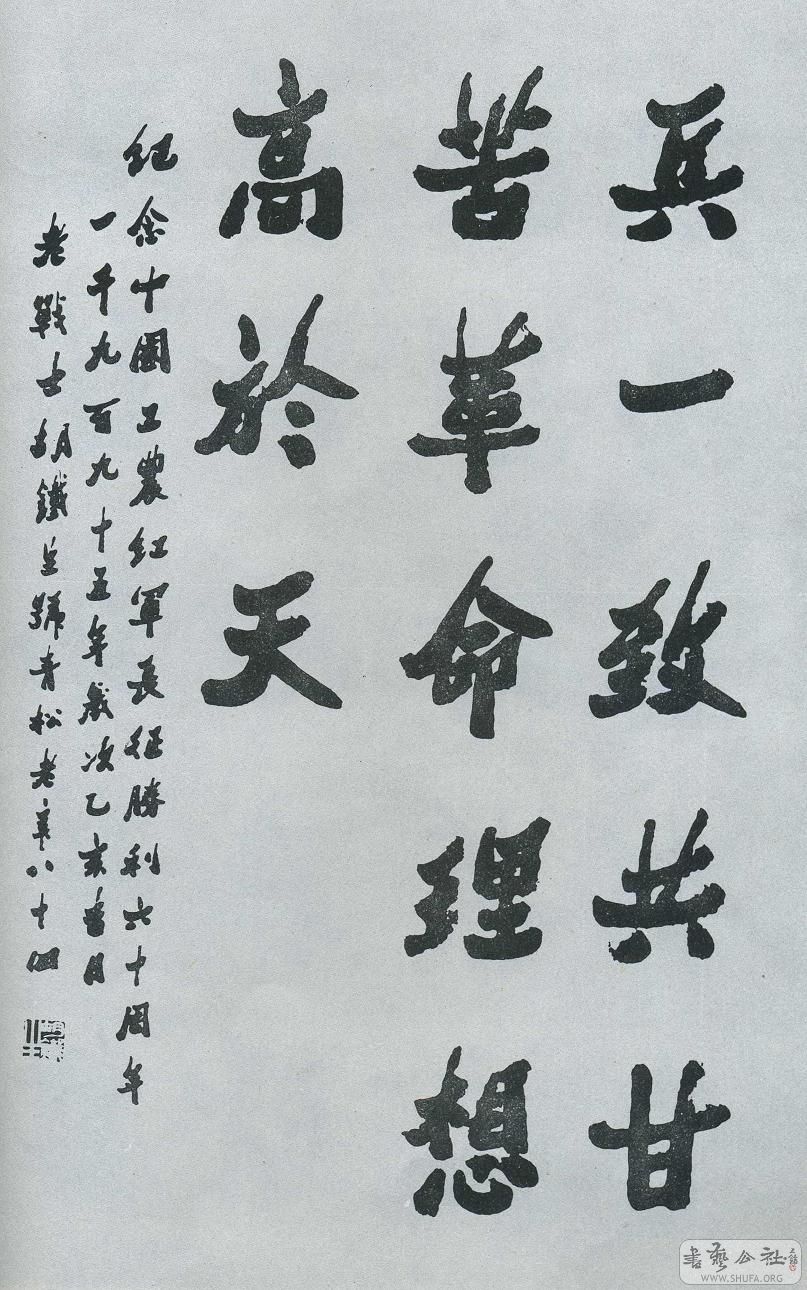 兵一致共甘
苦革命理想
高於天
纪念中國工農红軍長征勝利六十周年
一千九百九十五年歲次乙亥春月
老戰士胡鐵生號青松老年八十四
書藝公社
WWW.SHUFA.ORG